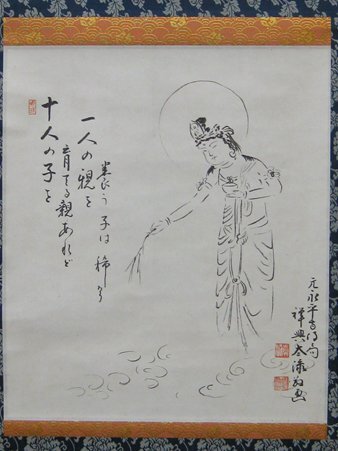 十人の子を
育てる親あれど
一人の親を
養う子は稀なり
元永平寺
祥興